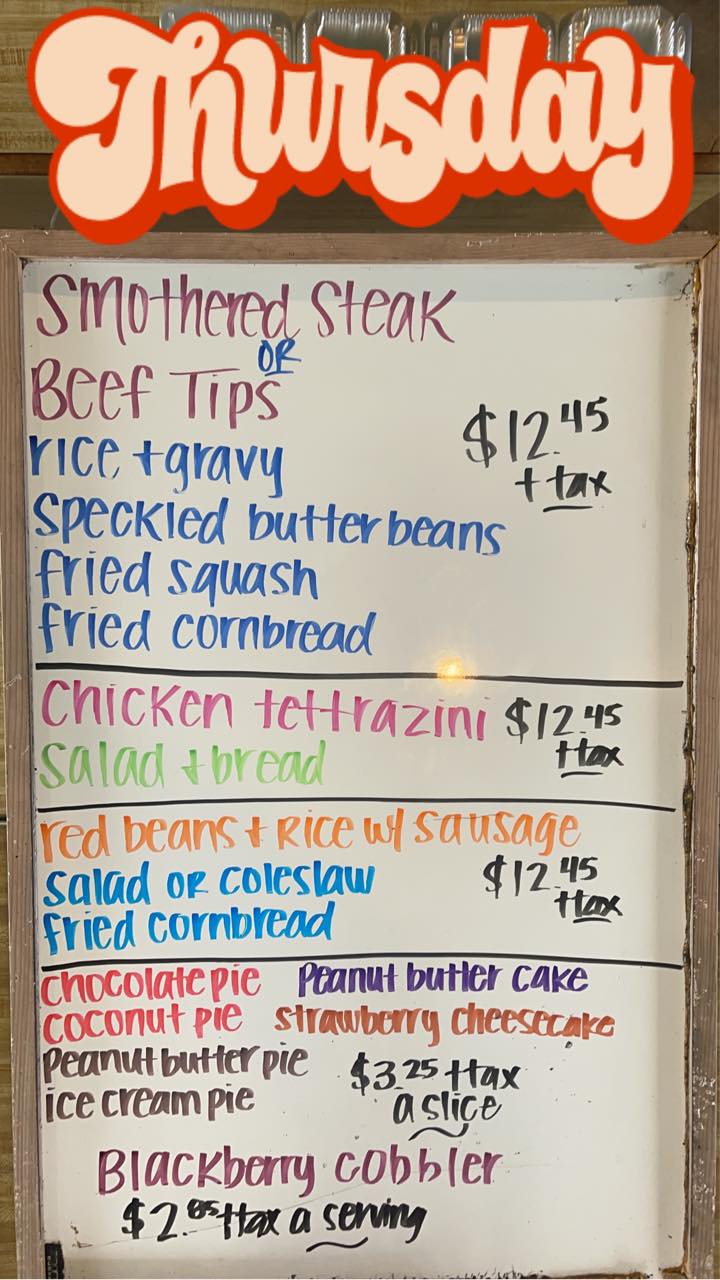 Thursday
Smothered Steak
OR
Beef Tips
$12.45
+ tax
rice + gravy
Speckled butterbeans
fried squash
fried cornbread
Chicken tettrazini $12.45
+ tax
Salad + bread
red beans + Rice w/ sausage
Salad OR coleslaw
$12.45
+ tax
fried cornbread
chocolate pie Peanut butter cake
coconut pie strawberry cheesecake
Peanut butter pie
$3.25 + tax
ice cream pie
a slice
Blackberry cobbler
$2.85 + tax a serving